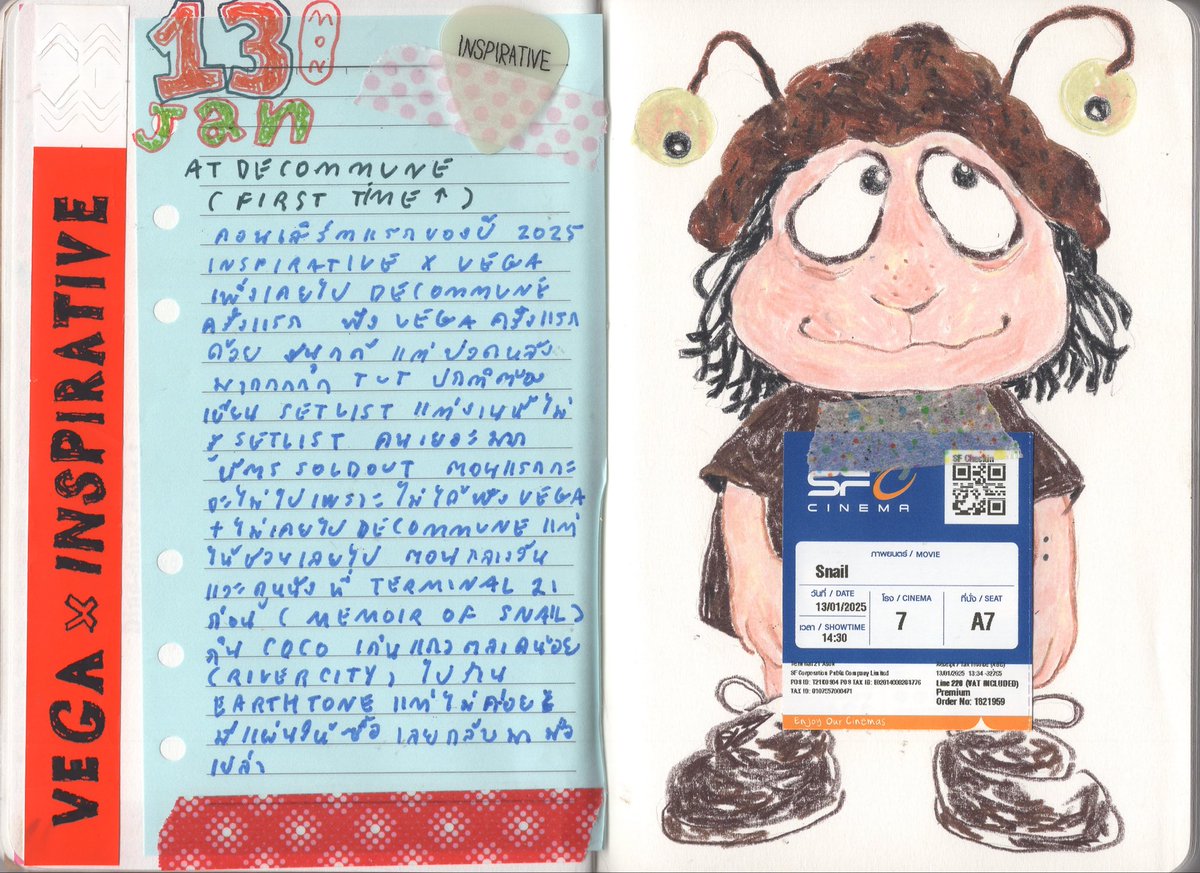 13 MON
Jan
INSPIRATIVE
AT DECOMMUNE
(FIRST TIME ↑)
คอนเสิร์ตแรกของปี 2025
INSPIRATIVE X VEGA
เพิ่งเคยไป DECOMMUNE
ครั้งแรก ฟัง VEGA ครั้งแรก
ด้วย สนุกดี แต่ปวดหลัง
มากกกกก TUT ปกติต้อง
เขียน SETLIST แต่งานนี้ไม่
SETLIST คนเยอะมาก
บัตร SOLDOUT ตอนแรกกะ
จะไม่ไปเพราะไม่ได้ฟัง VEGA
+ ไม่เคยไป DECOMMUNE แต่
ชวนเลยไป ตอนกลางวัน
แวะดูหนังที่ TERMINAL 21
ก่อน (MEMOIR OF SNAIL)
COCO เดินแถวตลาดน้อย
(RIVER CITY) ไปร้าน
EARTHTONE แต่ไม่ค่อย
มีแผ่นให้ซื้อ เลยกลับมามือ
เปล่า
VEGA X INSPIRATIVE
SF CINEMA
SF Checkin
ภาพยนตร์ / MOVIE
Snail
วันที่ / DATE
13/01/2025
เวลา / SHOWTIME
14:30
โรง / CINEMA
7
ที่นั่ง / SEAT
A7
Terminal 21 Asok
SF Corporation Public Company Limited
TAX ID: 0107557000471
13/01/2025 13:34
Line 220 (VAT INCLUDED)
Premium
Order No: 1621959
Enjoy Our Cinemas